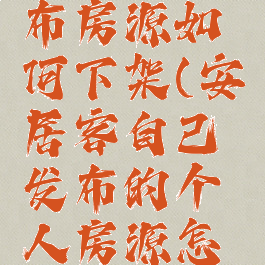 布房源如
何下架(安
居客自己
发布的个
人房源怎